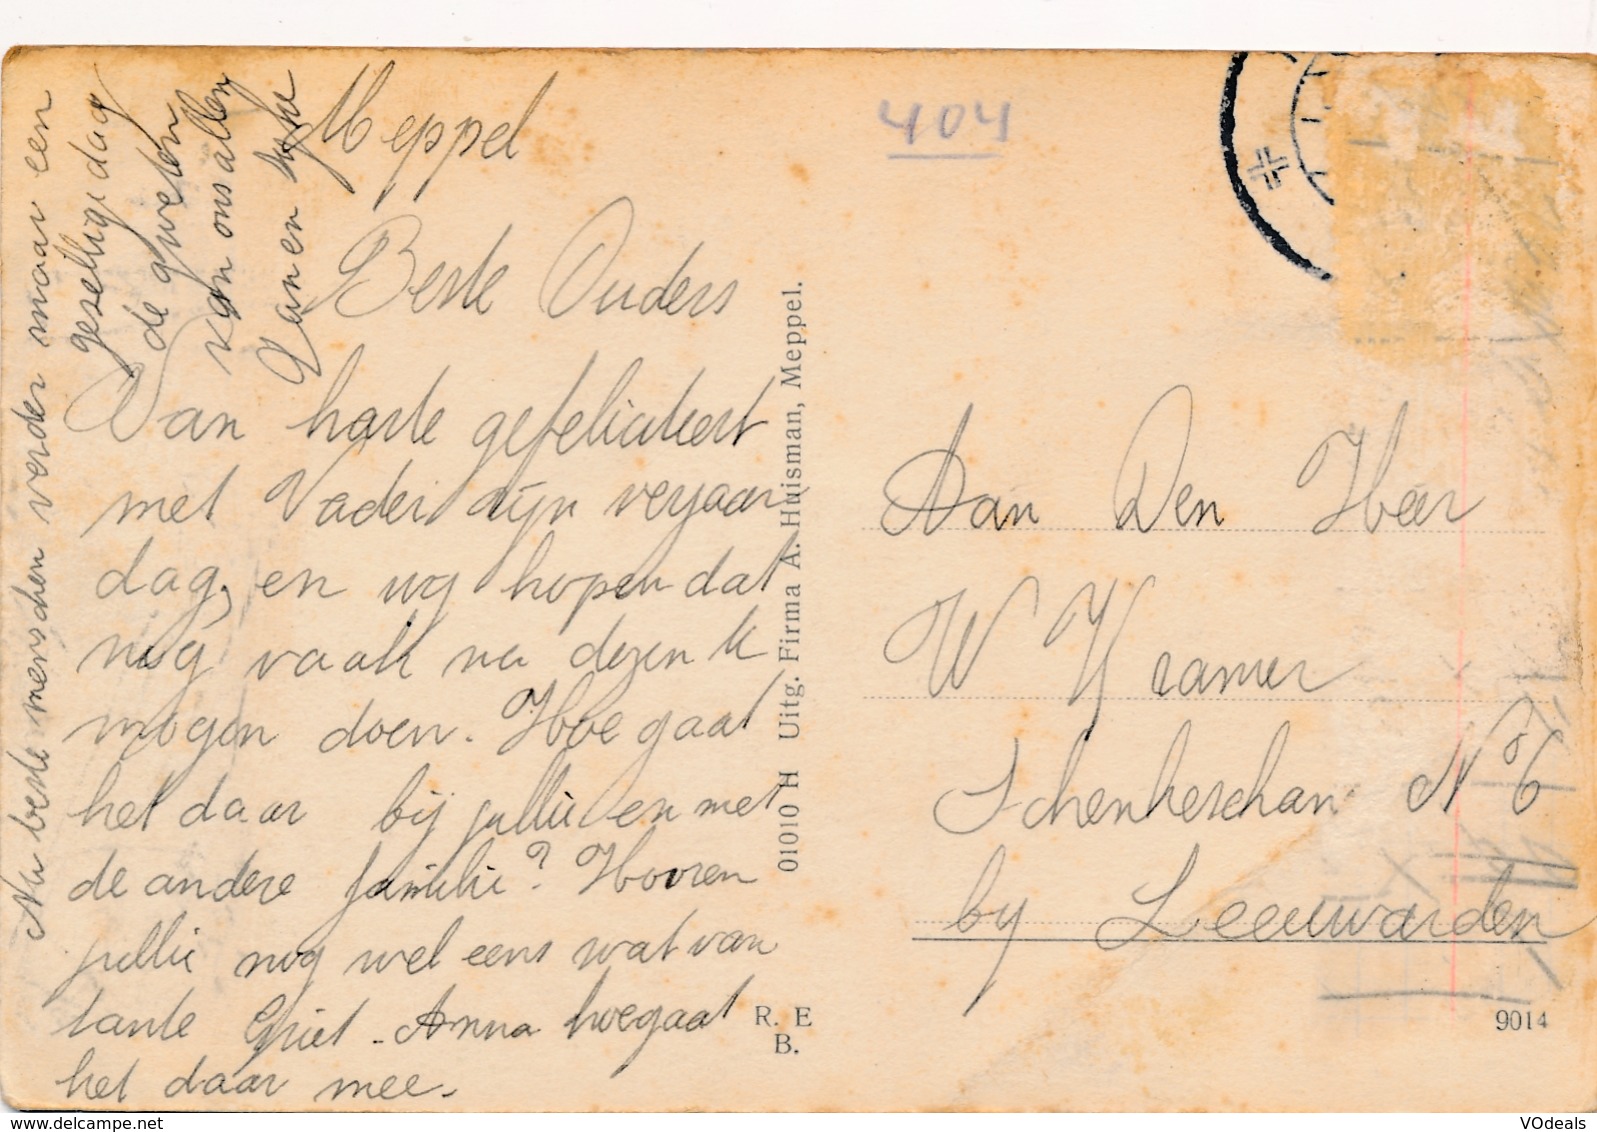 Meppel
Beste Ouders
Van harte gefeliciteert
met Vader zijn verjaar
dag, en wij hopen dat
nog vaak na dezen te
mogen doen. Hoe gaat
het daar bij jullie en met
de andere familie? Hooren
jullie nog wel eens wat van
tante Griet - Anna hoe gaat
het daar mee.
Nu beste menschen verder maar een
gezellige dag
de groeten
van ons allen
404
Aan Den Heer
W Kramer
Schenkeschan No 6
by Leeuwarden
01010 H Uitg. Firma A. Huisman, Meppel.
R. E
B.
9014
www.delcampe.net
VOdeals